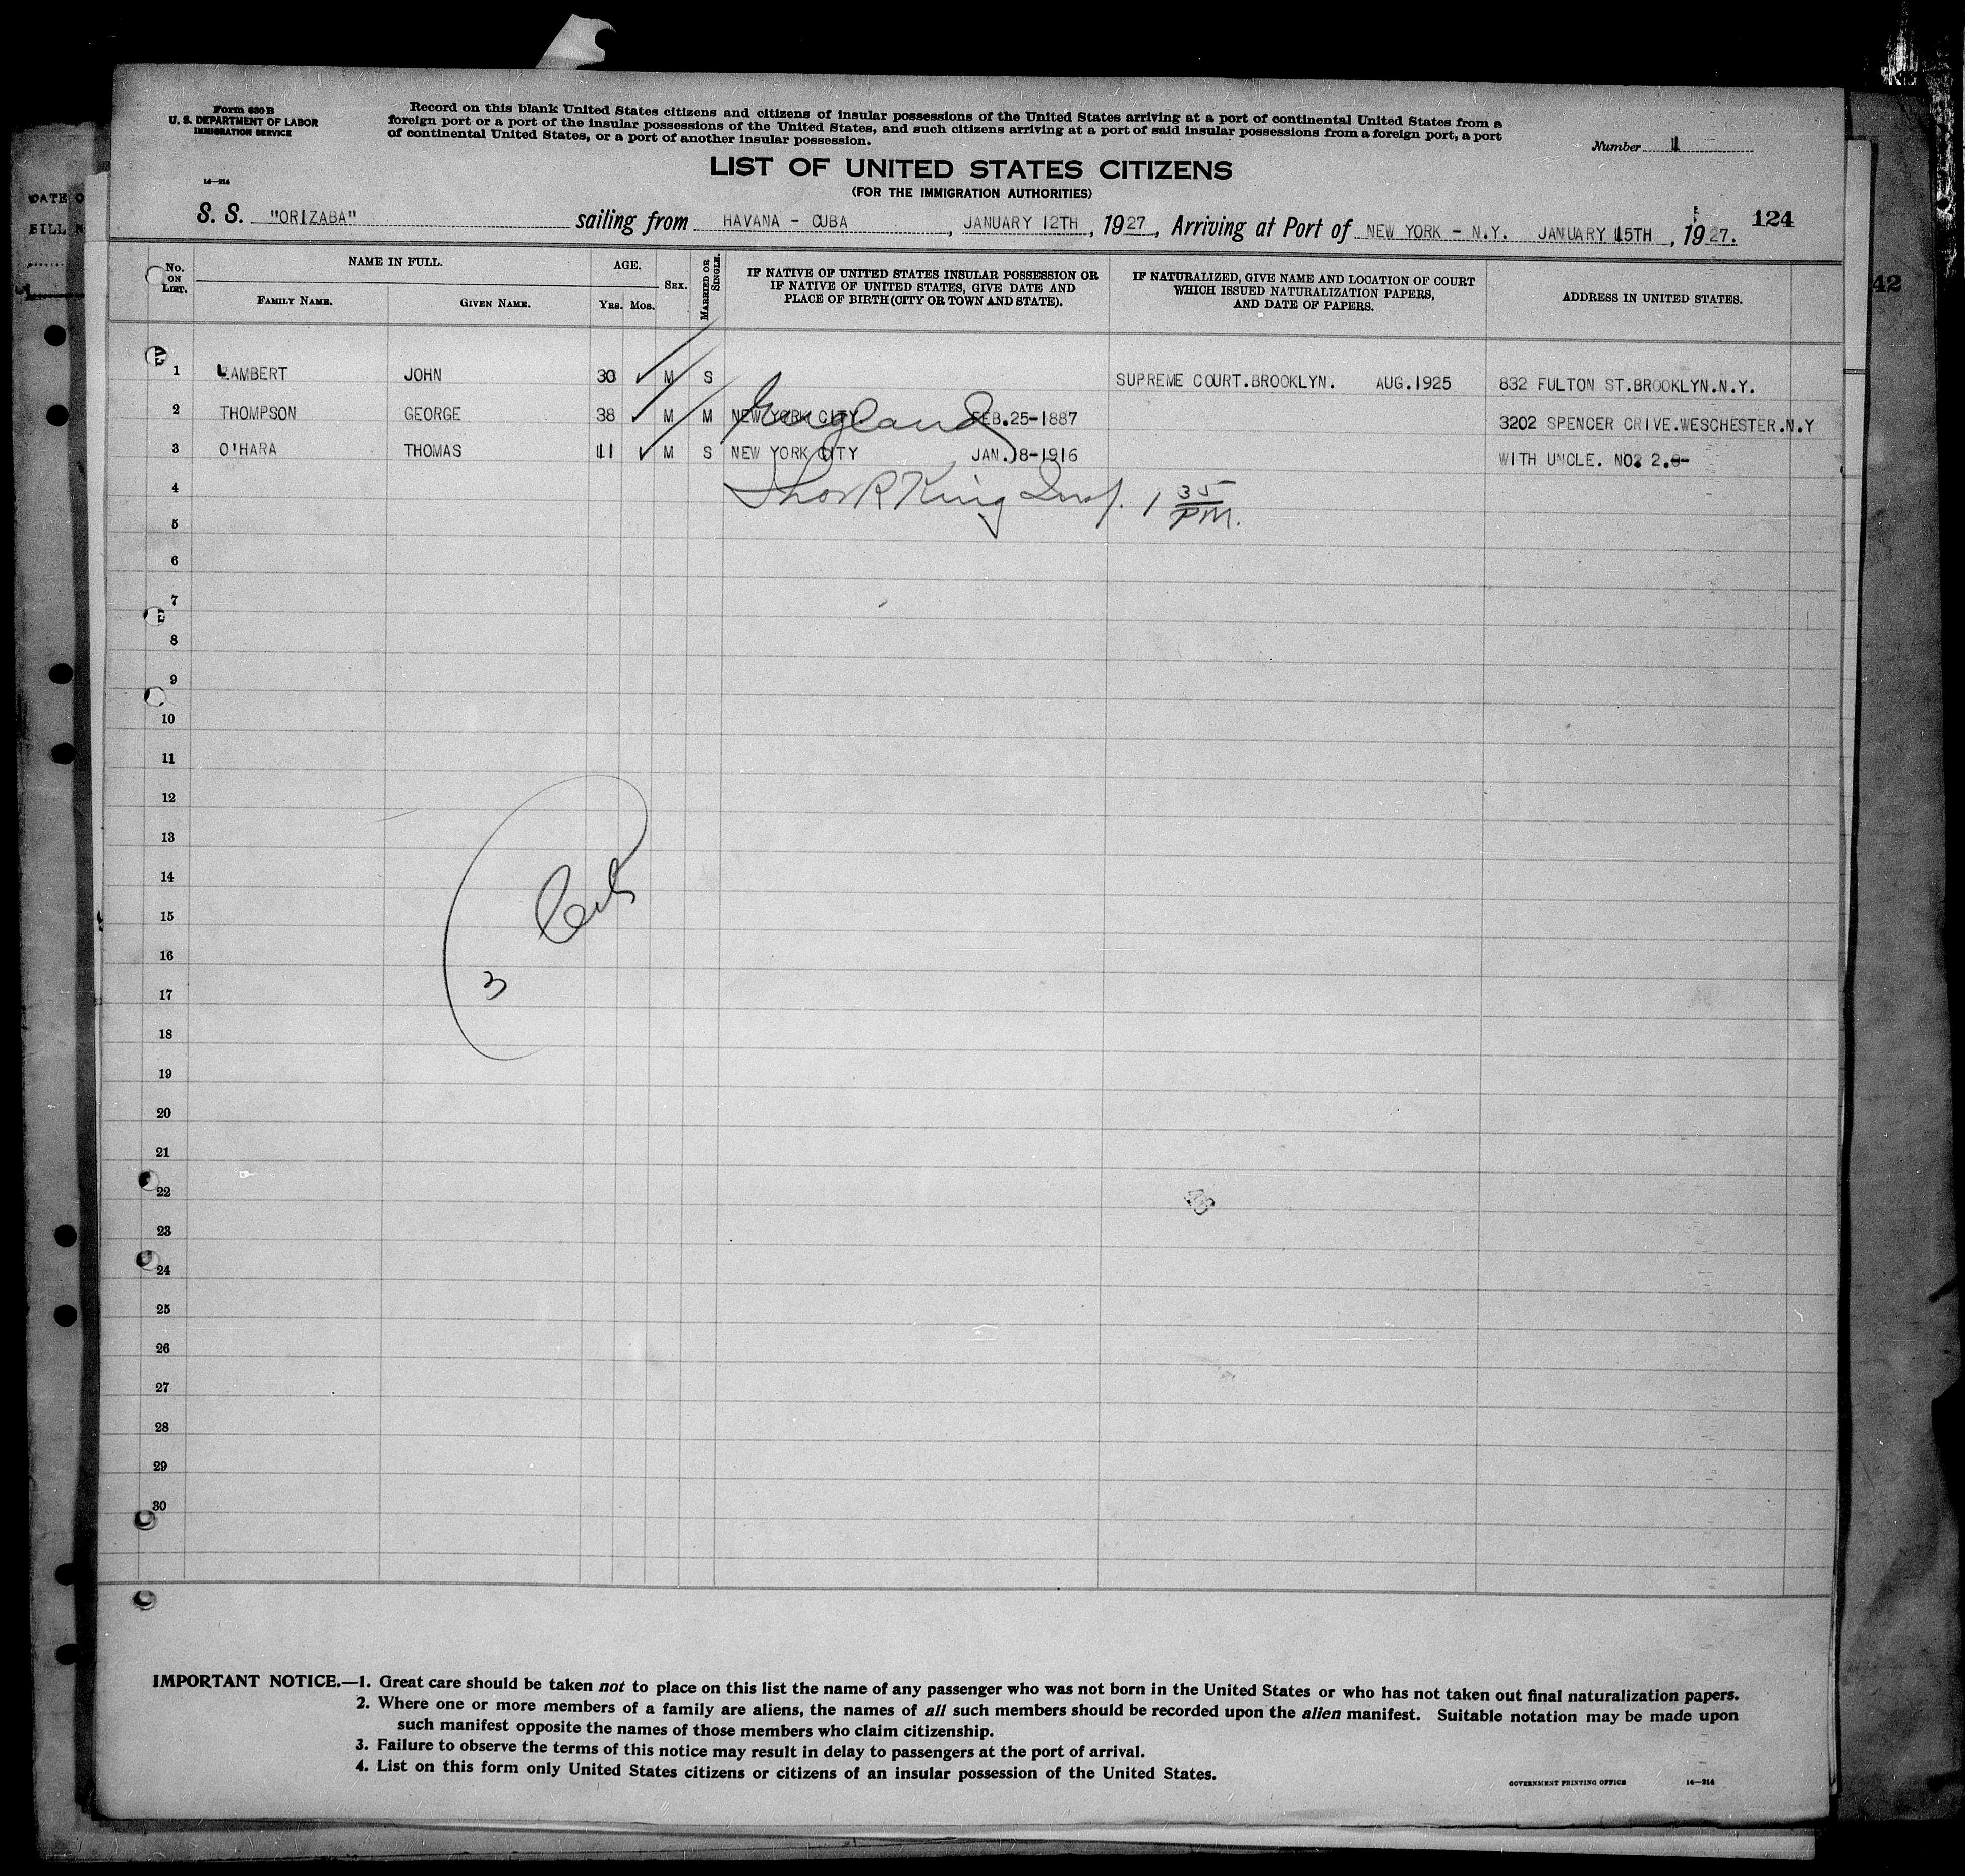 Form 630 B
U. S. DEPARTMENT OF LABOR
IMMIGRATION SERVICE
14—214
Record on this blank United States citizens and citizens of insular possessions of the United States arriving at a port of continental United States from a
foreign port or a port of the insular possessions of the United States, and such citizens arriving at a port of said insular possessions from a foreign port, a port
of continental United States, or a port of another insular possession.
Number 1
LIST OF UNITED STATES CITIZENS
(FOR THE IMMIGRATION AUTHORITIES)
124
S. S. "ORIZABA" sailing from HAVANA - CUBA, JANUARY 12TH, 1927, Arriving at Port of NEW YORK - N.Y. JANUARY 15TH, 1927.
No. ON LIST. NAME IN FULL. FAMILY NAME. GIVEN NAME. AGE. YRS. MOS. SEX. MARRIED OR SINGLE. IF NATIVE OF UNITED STATES INSULAR POSSESSION OR IF NATIVE OF UNITED STATES, GIVE DATE AND PLACE OF BIRTH (CITY OR TOWN AND STATE). IF NATURALIZED, GIVE NAME AND LOCATION OF COURT WHICH ISSUED NATURALIZATION PAPERS, AND DATE OF PAPERS. ADDRESS IN UNITED STATES.
1 LAMBERT JOHN 30 M S SUPREME COURT.BROOKLYN. AUG.1925 832 FULTON ST.BROOKLYN.N.Y.
England
2 THOMPSON GEORGE 38 M M NEW YORK CITY FEB.25-1887 3202 SPENCER CRIVE.WESCHESTER.N.Y
3 O'HARA THOMAS 11 M S NEW YORK CITY JAN.18-1916 WITH UNCLE. NO: 2.
4 Thos R King Insp. 1 35 PM.
5
6
7
8
9
10
11
12
13
14
15
16
3
17
18
19
20
21
22
23
24
25
26
27
28
29
30
IMPORTANT NOTICE.—1. Great care should be taken not to place on this list the name of any passenger who was not born in the United States or who has not taken out final naturalization papers.
2. Where one or more members of a family are aliens, the names of all such members should be recorded upon the alien manifest. Suitable notation may be made upon
such manifest opposite the names of those members who claim citizenship.
3. Failure to observe the terms of this notice may result in delay to passengers at the port of arrival.
4. List on this form only United States citizens or citizens of an insular possession of the United States.
GOVERNMENT PRINTING OFFICE 14—214
42